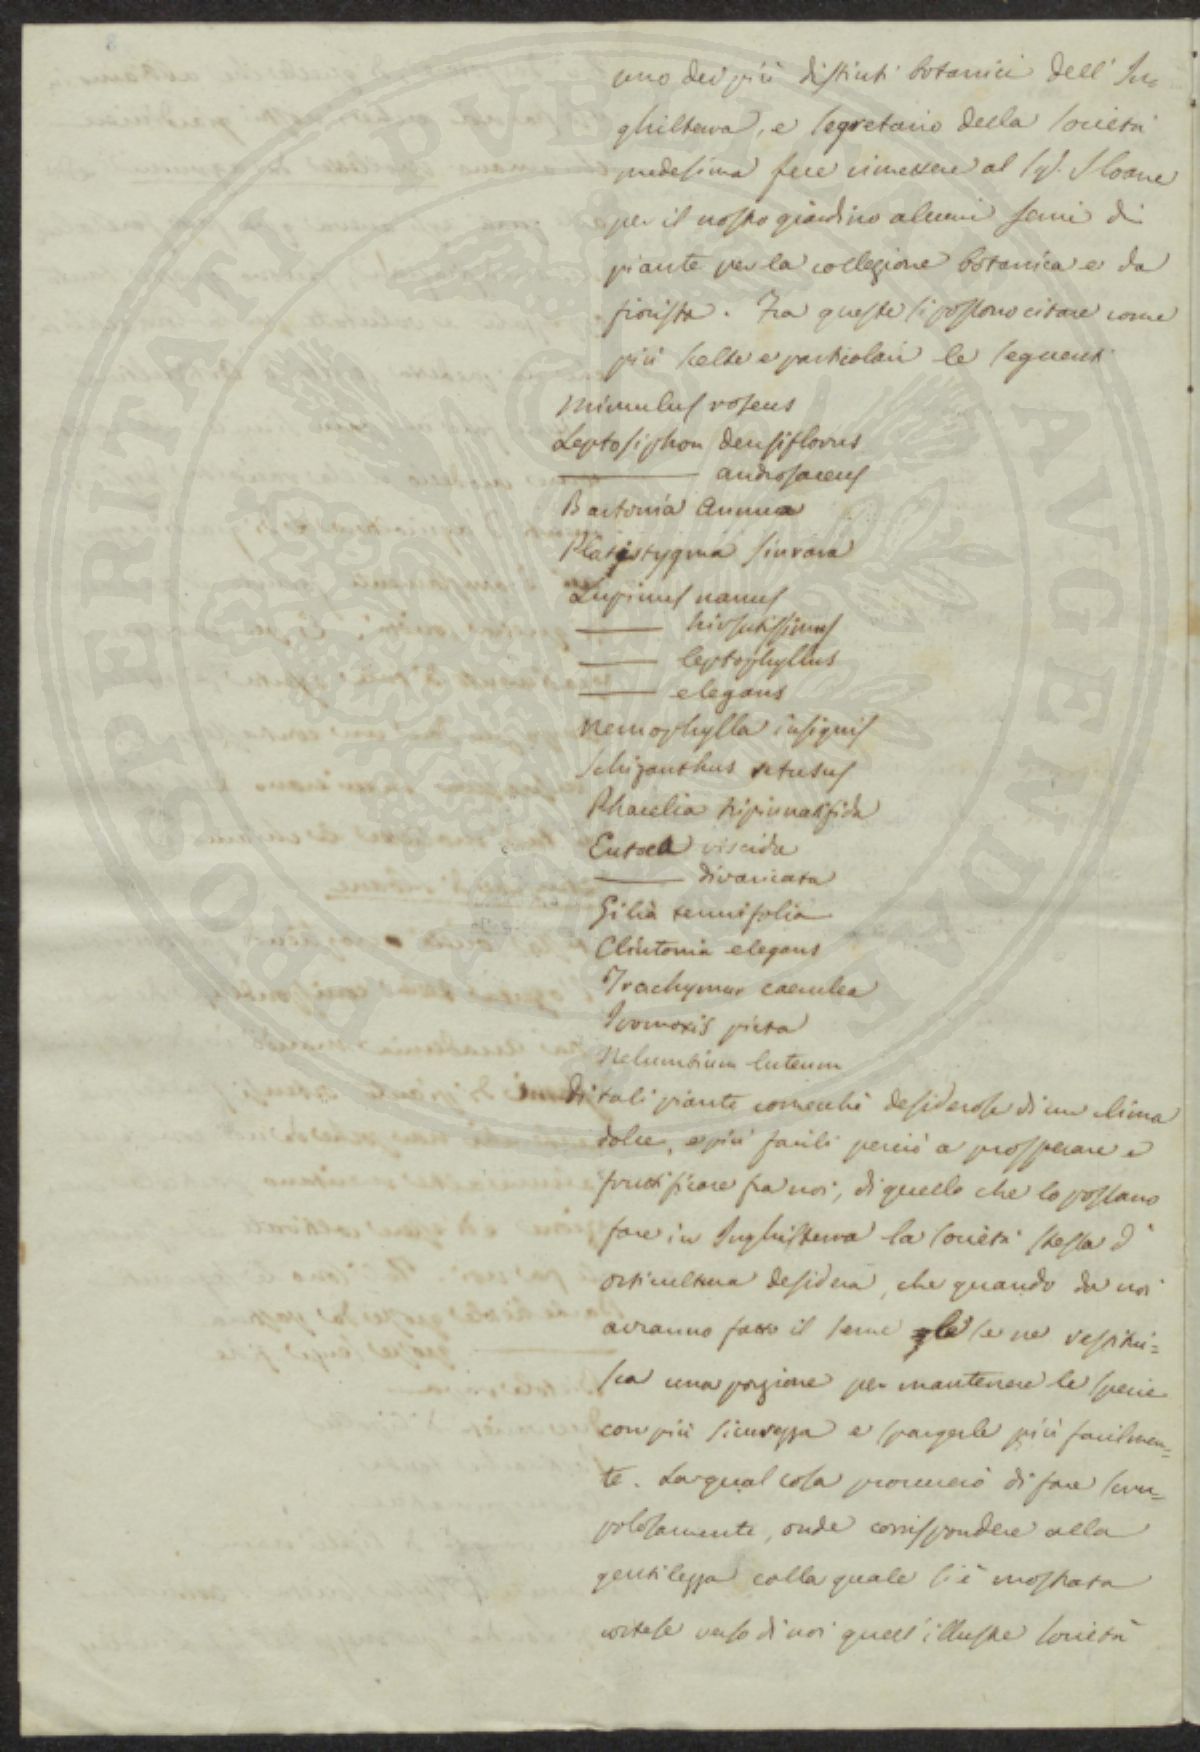 uno dei più distinti botanici dell' In-
ghilterra, e segretario della società
medesima fece rimettere al Sig.r Sloane
per il nostro giardino alcuni semi di
piante per la collezione botanica e da
fiorista. Tra queste si possono citare come
più scelte e particolari le seguenti
Mimulus roseus
Leptosiphon densiflorus
——— androsaceus
Bartonia aurea
Platystygma
Lupinus nanus
——— hirsutissimus
——— leptophyllus
——— elegans
Nemophylla insignis
Schizanthus retusus
Phacelia bipinnatifida
Eutoca viscida
——— divaricata
Gilia tenuifolia
Clintonia elegans
Trachymar caerulea
picta
Nelumbium luteum
Di tali piante comecchè desiderose di un clima
dolce, e più facili perciò a prosperare e
fruttificare fra noi, di quello che lo possano
fare in Inghilterra la società stessa d'
orticultura desidera, che quando da noi
avranno fatto il seme gle se ne restitui=
sca una porzione per mantenere le specie
con più sicurezza e spargerle più facilmen=
te. La qual cosa procurerò di fare scru=
polosamente, onde corrispondere alla
gentilezza colla quale si è mostrata
cortese verso di noi quell' illustre società
APERITI PVBLICAE PROSPERITATI AVGENDAE